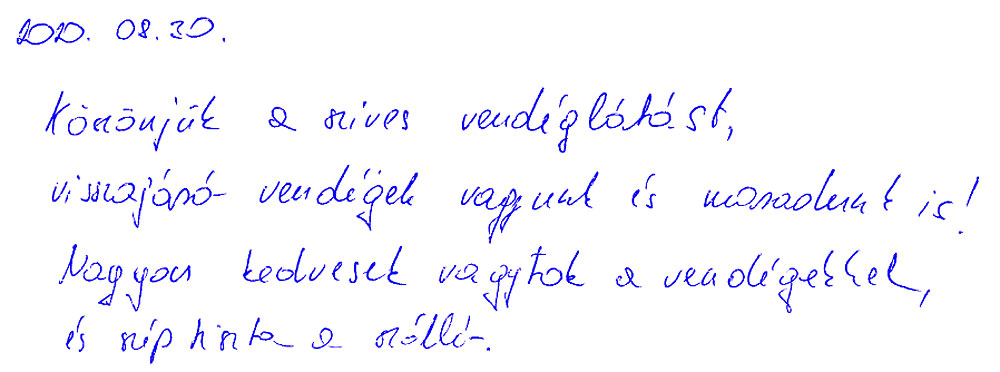 2020. 08.30.
Köszönjük a szives vendéglátást,
visszajáró vendégek vagyunk és maradunk is!
Nagyon kedvesek vagytok a vendégekkel,
és szép tiszta a szálló.